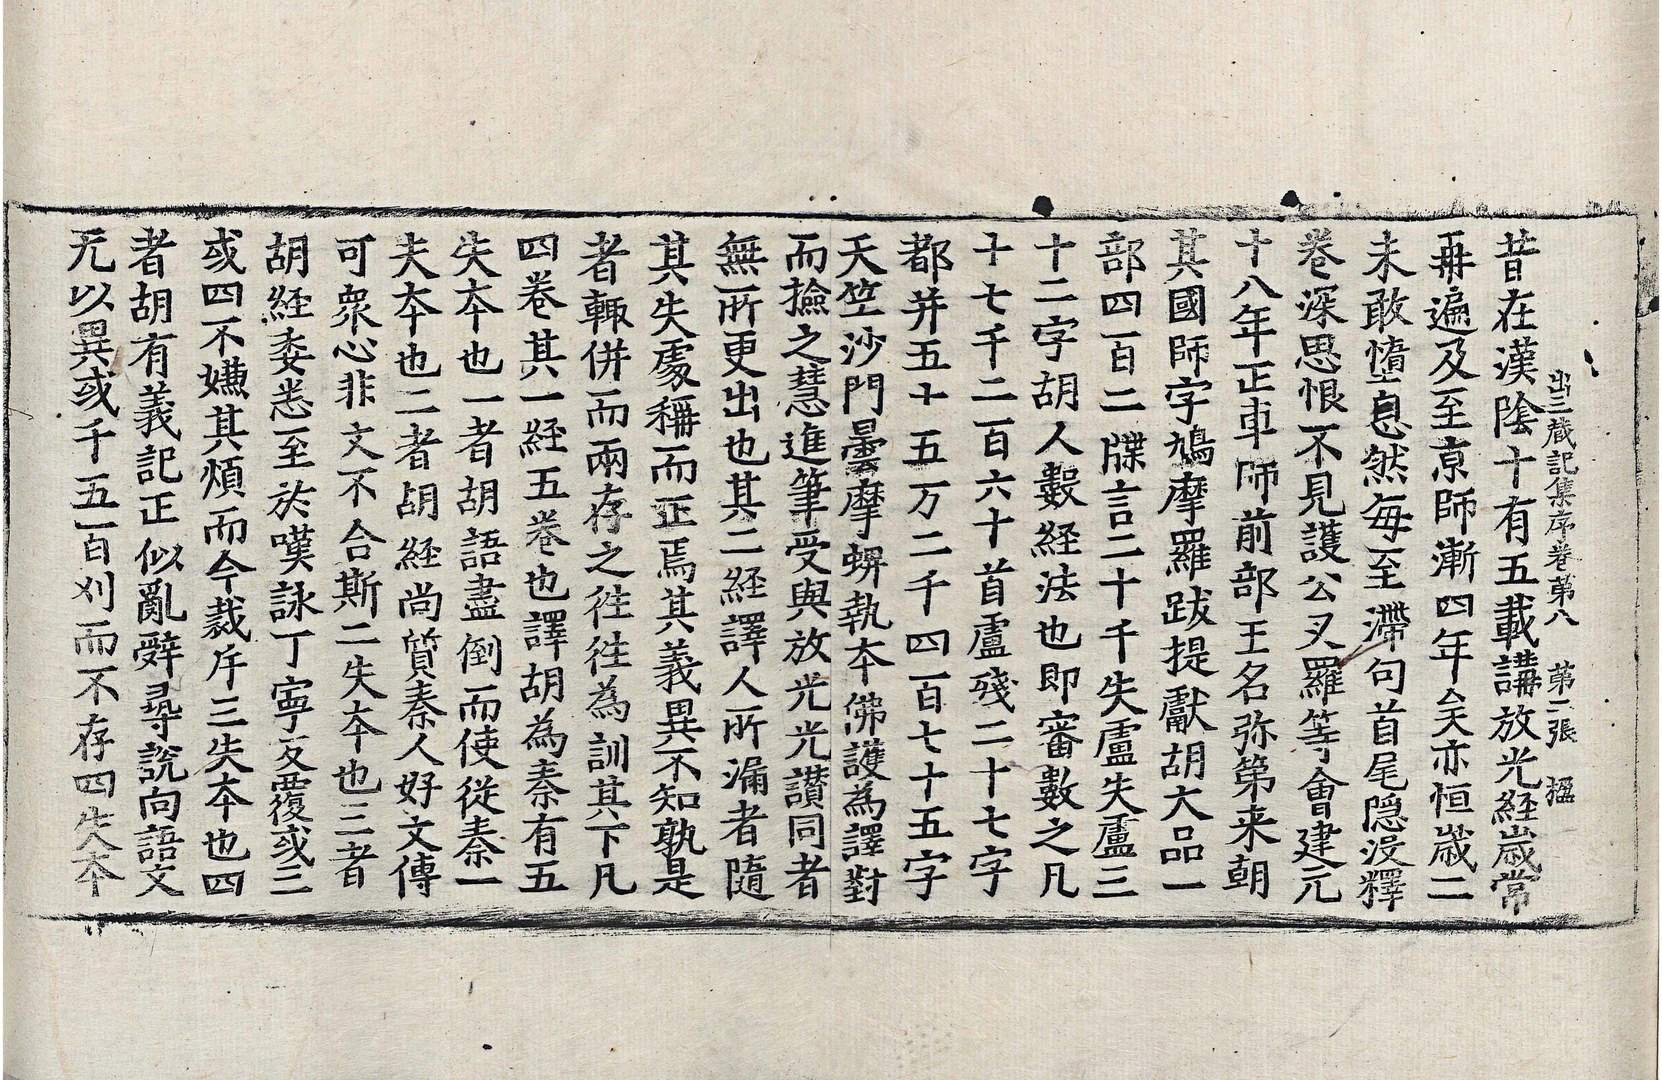 出三藏記集序卷第八　第二張　楹
昔在漢陰十有五載講放光経歲常
再遍及至京師漸四年矣亦恒歲二
未敢憜息然每至滯句首尾隱没釋
卷深思恨不見護公叉羅等會建元
十八年正車師前部王名弥第来朝
其國師字鳩摩羅跋提獻胡大品一
部四百二牒言二十千失盧失盧三
十二字胡人數経法也即審數之凡
十七千二百六十首盧殘二十七字
都并五十五万二千四百七十五字
天竺沙門曇摩蜱執夲佛護為譯對
而撿之慧進筆受與放光光讃同者
無所更出也其二経譯人所漏者隨
其失處稱而正焉其義異不知孰是
者輙併而兩存之徃徃為訓其下凡
四卷其一経五卷也譯胡為秦有五
失夲也一者胡語盡倒而使從秦一
失夲也二者胡経尚質秦人好文傳
可衆心非文不合斯二失夲也三者
胡経委悉至於嘆詠丁寧反覆或三
或四不嫌其煩而今裁斥三失夲也四
者胡有義記正似亂辤尋説向語文
无以異或千五百刈而不存四失夲